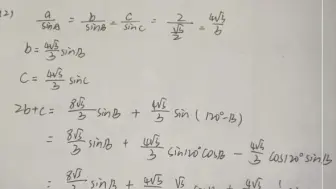 (2) a/sinA = b/sinB = c/sinC = 2/(√3/2) = 4√3/6
b = 4√3/3 sinB
C = 4√3/3 sinC
2b+c = 8√3/3 sinB + 4√3/3 sin(120°-B)
= 8√3/3 sinB + 4√3/3 sin120°cosB - 4√3/3 cos120°sinB
= 8√3/3 sinB + 4√3